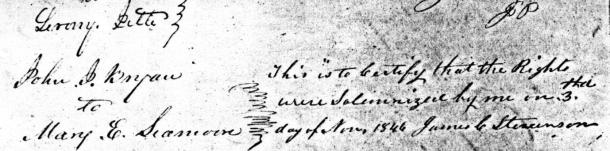 JP
Lerony Pitte
John J. Bryan This is to Certify that the Rights
to were Solemnized by me on 3rd
Mary E. Seamoore day of Nov, 1846 James C Stevenson